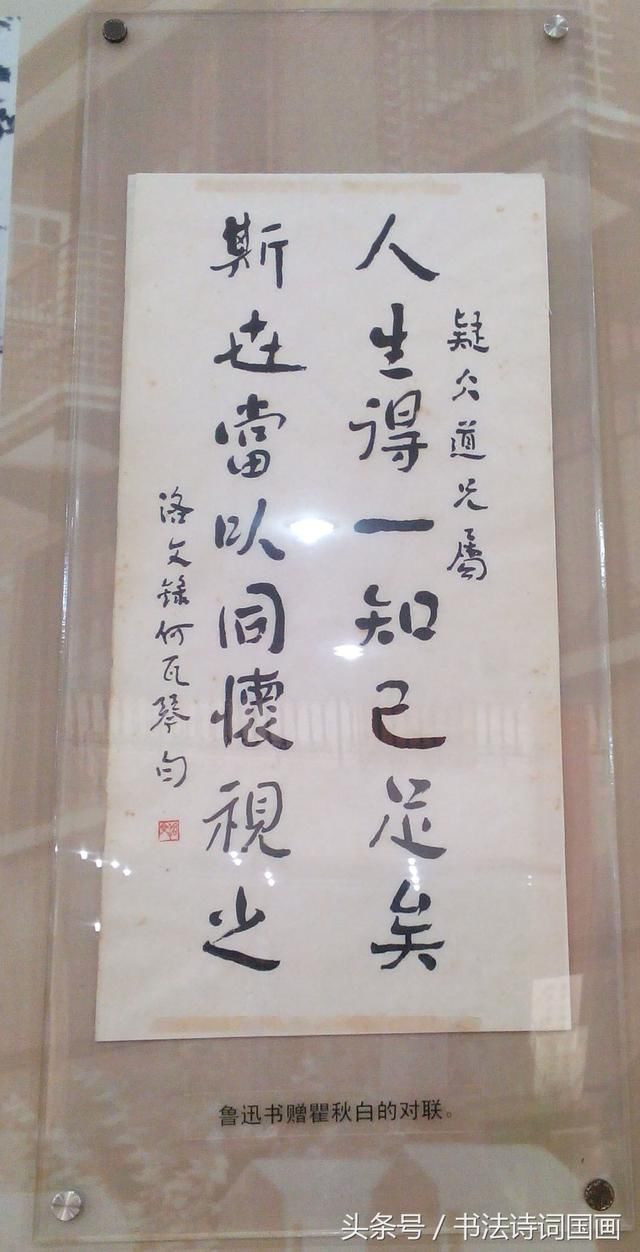 疑仌道兄屬
人生得一知己足矣
斯世當以同懷視之
洛文錄何瓦琴句
鲁迅书赠瞿秋白的对联。
头条号/书法诗词国画